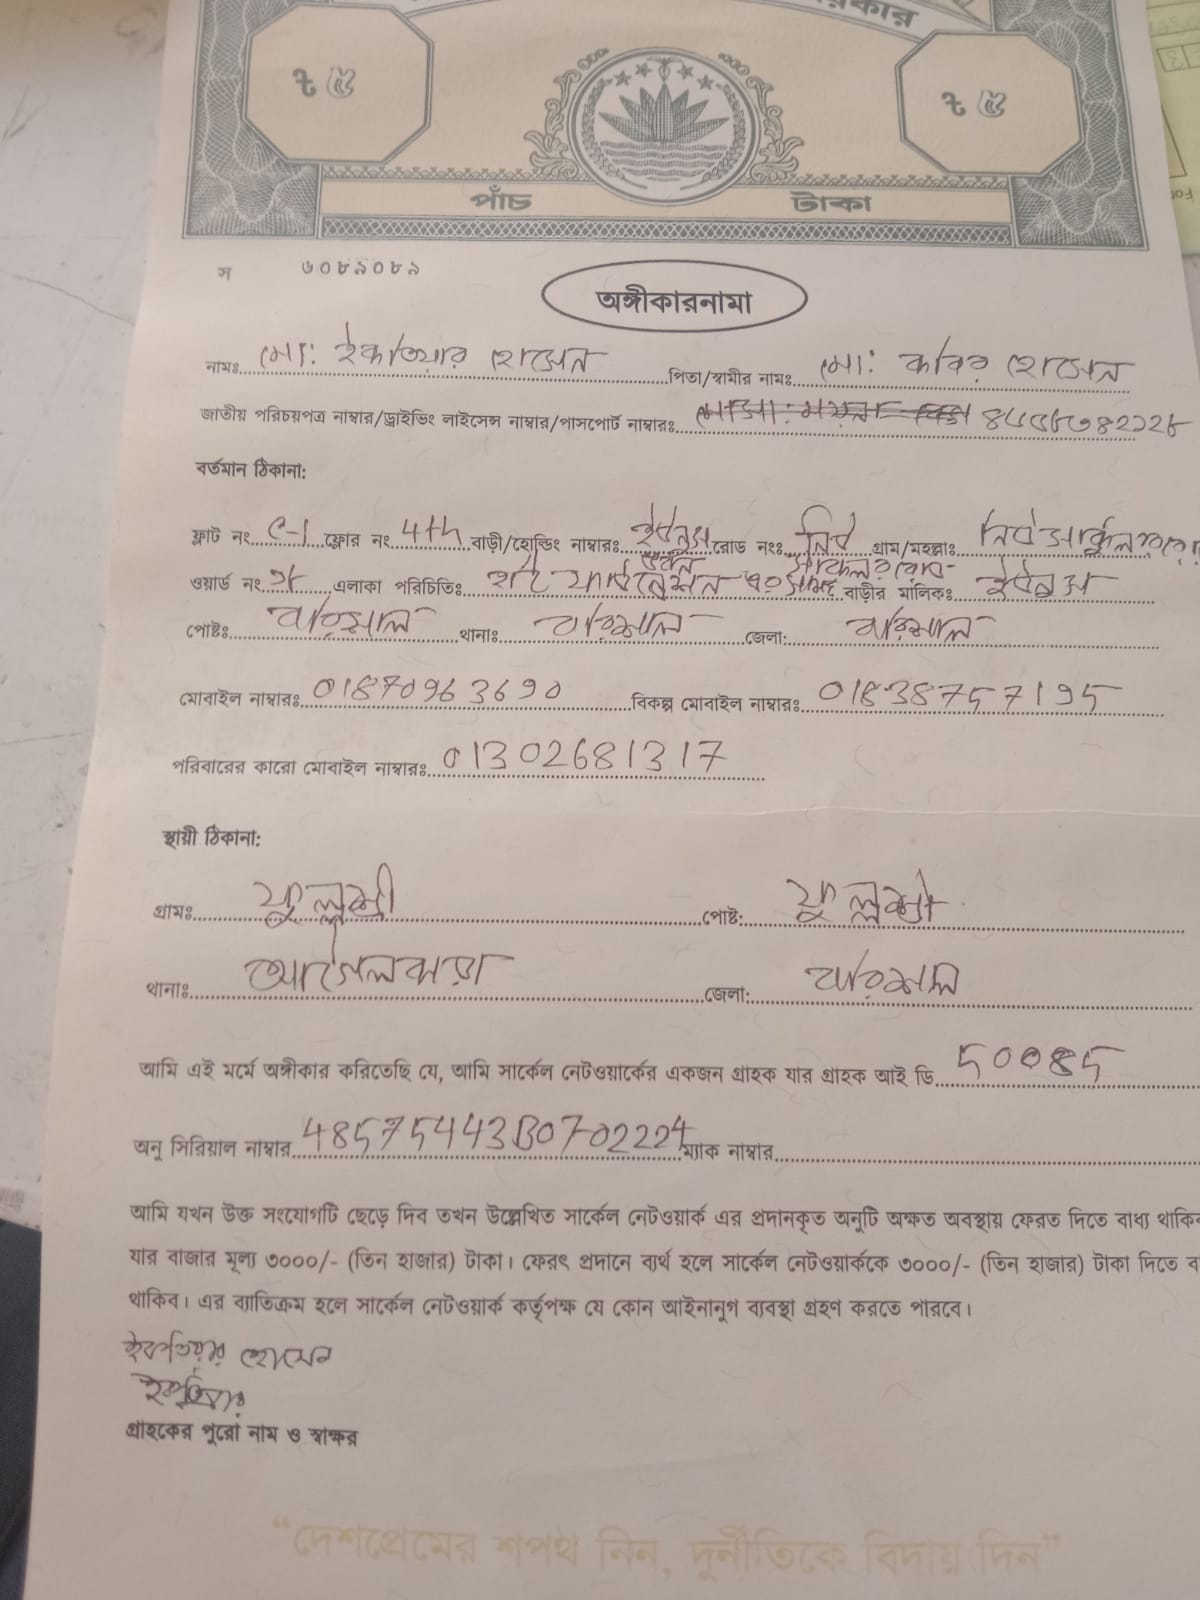 ৳ ৫
৳ ৫
পাঁচ টাকা
স ৬০৮৯০৮৯
অঙ্গীকারনামা
নামঃ মো: ইকতিয়ার হোসেন পিতা/স্বামীর নামঃ মো: কবির হোসেন
জাতীয় পরিচয়পত্র নাম্বার/ড্রাইভিং লাইসেন্স নাম্বার/পাসপোর্ট নাম্বারঃ
বর্তমান ঠিকানা:
ফ্লাট নং C-1 ফ্লোর নং 4th বাড়ী/হোল্ডিং নাম্বারঃ ইউনুস ভবন রোড নংঃ নিউ সার্কুলার রোড গ্রাম/মহল্লাঃ নিউ সার্কুলার রোড
ওয়ার্ড নং এলাকা পরিচিতিঃ বাড়ীর মালিকঃ ইউনুস
পোষ্টঃ বরিশাল থানাঃ বরিশাল জেলা: বরিশাল
মোবাইল নাম্বারঃ 01870963690 বিকল্প মোবাইল নাম্বারঃ 01838757195
পরিবারের কারো মোবাইল নাম্বারঃ 01302681317
স্থায়ী ঠিকানা:
গ্রামঃ ফুল্লশ্রী পোষ্ট: ফুল্লশ্রী
থানাঃ আগৈলঝাড়া জেলা: বরিশাল
আমি এই মর্মে অঙ্গীকার করিতেছি যে, আমি সার্কেল নেটওয়ার্কের একজন গ্রাহক যার গ্রাহক আই ডি 50085
অনু সিরিয়াল নাম্বার 48575443B0702224 ম্যাক নাম্বার
আমি যখন উক্ত সংযোগটি ছেড়ে দিব তখন উল্লেখিত সার্কেল নেটওয়ার্ক এর প্রদানকৃত অনুটি অক্ষত অবস্থায় ফেরত দিতে বাধ্য থাকিব
যার বাজার মূল্য ৩০০০/- (তিন হাজার) টাকা। ফেরৎ প্রদানে ব্যর্থ হলে সার্কেল নেটওয়ার্ককে ৩০০০/- (তিন হাজার) টাকা দিতে
থাকিব। এর ব্যাতিক্রম হলে সার্কেল নেটওয়ার্ক কর্তৃপক্ষ যে কোন আইনানুগ ব্যবস্থা গ্রহণ করতে পারবে।
ইকতিয়ার হোসেন
ইকতিয়ার
গ্রাহকের পুরো নাম ও স্বাক্ষর
“দেশপ্রেমের শপথ নিন, দুর্নীতিকে বিদায় দিন”